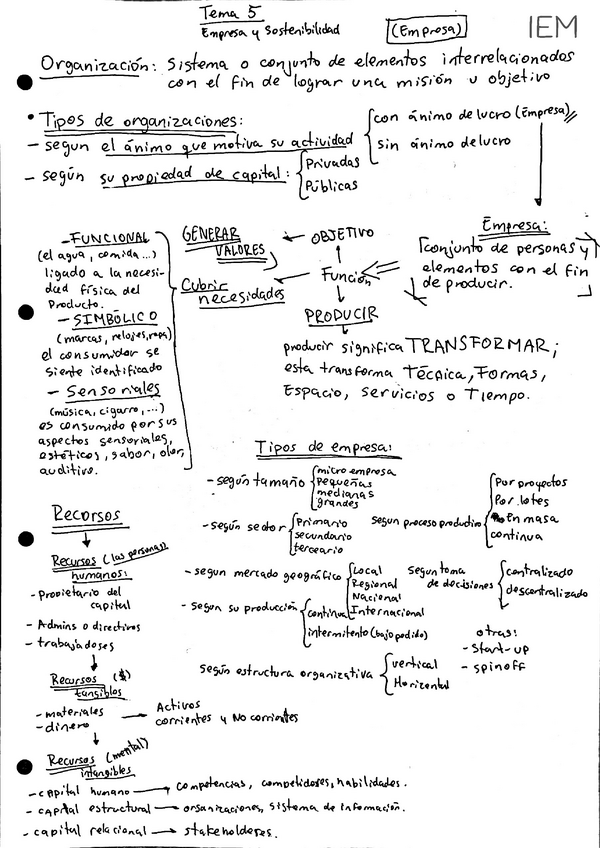 Tema 5
Empresa y Sostenibilidad
(Empresa)
IEM
Organización: Sistema o conjunto de elementos interrelacionados
con el fin de lograr una misión u objetivo
• Tipos de organizaciones:
- segun el ánimo que motiva su actividad
con ánimo de lucro (Empresa)
sin ánimo de lucro
- según su propiedad de capital:
Privadas
Públicas
Empresa:
conjunto de personas y
elementos con el fin
de producir.
Función
OBJETIVO
GENERAR
VALORES
Cubrir
necesidades
PRODUCIR
producir significa TRANSFORMAR;
esta transforma Técnica, Formas,
Espacio, Servicios o Tiempo.
- FUNCIONAL
(el agua, comida...)
ligado a la necesi-
dad física del
Producto.
- SIMBÓLICO
(marcas, relojes, ropa)
el consumidor se
siente identificado
- Sensoriales
(música, cigarro, ...)
es consumido por sus
aspectos sensoriales,
estéticos, sabor, olor,
auditivo.
Tipos de empresa:
- según tamaño
micro empresa
Pequeñas
medianas
grandes
- según sector
Primario
secundario
terceario
segun proceso productivo
Por proyectos
Por lotes
En masa
continua
- segun mercado geográfico
Local
Regional
Nacional
Internacional
segun toma
de decisiones
centralizado
descentralizado
- segun su producción
continua
intermitente (bajo pedido)
otras:
- Start-up
- spinoff
según estructura organizativa
vertical
Horizontal
Recursos
Recursos (las personas)
humanos:
- propietario del
capital
- Admins o directivos
- trabajadores
Recursos ($)
tangibles
- materiales
- dinero
Activos
corrientes y No corrientes
Recursos (mental)
intangibles
- capital humano → competencias, competidores, habilidades.
- capital estructural → organizaciones, sistema de información.
- capital relacional → stakeholderes.